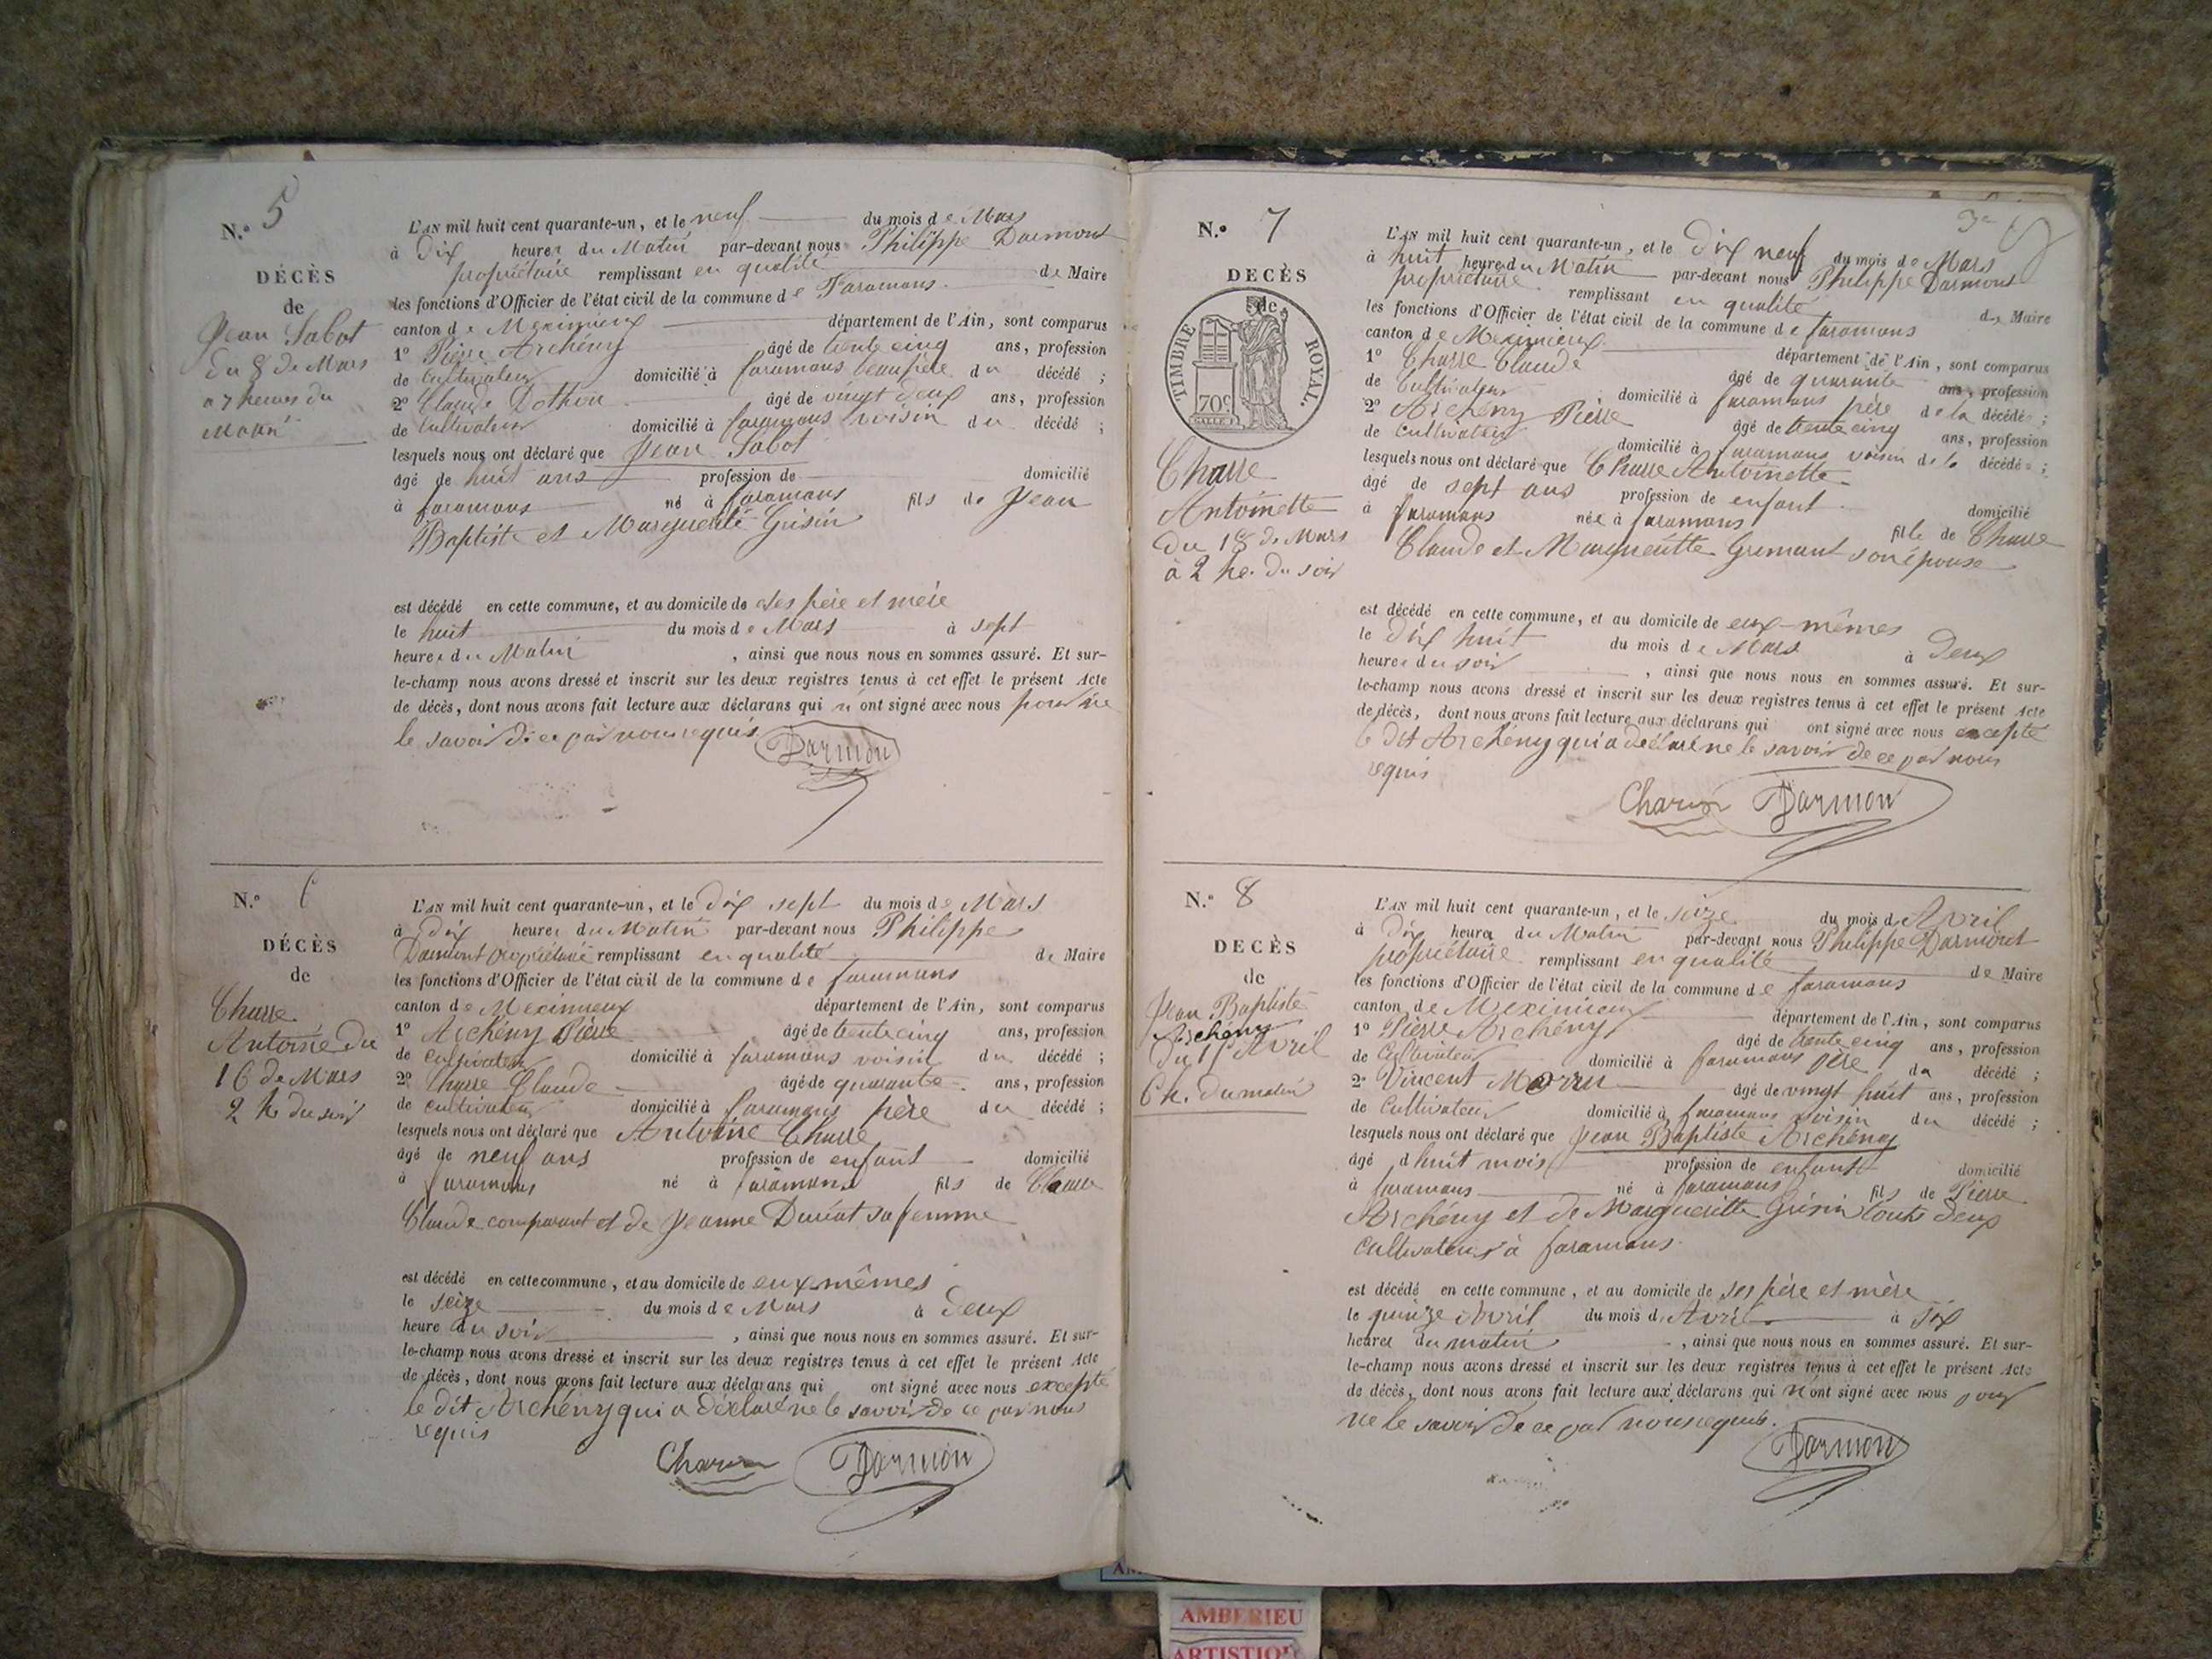 N.º 5
DÉCÈS
de
Jean Sabot
du 8 de Mars
a 7 heures du
Matin
L'AN mil huit cent quarante-un, et le neuf du mois de Mars
à Dix heures du Matin par-devant nous Philippe Darmont
propriétaire remplissant en qualité de Maire
les fonctions d'Officier de l'état civil de la commune de Faramans
canton de Meximieux département de l'Ain, sont comparus
1º Pierre Archény âgé de trente cinq ans, profession
de Cultivateur domicilié à faramans beaupère du décédé ;
2º Claude Dothou âgé de vingt deux ans, profession
de Cultivateur domicilié à faramans voisin du décédé ;
lesquels nous ont déclaré que Jean Sabot
âgé de huit ans profession de domicilié
à faramans né à faramans fils de Jean
Baptiste et Marguerite Grisin
est décédé en cette commune, et au domicile de ses père et mère
le huit du mois de Mars à sept
heures du Matin , ainsi que nous nous en sommes assuré. Et sur-
le-champ nous avons dressé et inscrit sur les deux registres tenus à cet effet le présent Acte
de décès, dont nous avons fait lecture aux déclarans qui n'ont signé avec nous pour ne
le savoir de ce par nous requis
Darmon
N.º 6
DÉCÈS
de
Charre
Antoine du
16 de Mars
2 he du soir
L'AN mil huit cent quarante-un, et le dix sept du mois de Mars
à dix heures du Matin par-devant nous Philippe
Darmont propriétaire remplissant en qualité de Maire
les fonctions d'Officier de l'état civil de la commune de faramans
canton de Meximieux département de l'Ain, sont comparus
1º Archény Pierre âgé de trente cinq ans, profession
de cultivateur domicilié à faramans voisin du décédé ;
2º Charre Claude âgé de quarante ans, profession
de cultivateur domicilié à faramans père du décédé ;
lesquels nous ont déclaré que Antoine Charre
âgé de neuf ans profession de enfant domicilié
à faramans né à faramans fils de Charre
Claude comparant et de Jeanne Duréat sa femme
est décédé en cette commune, et au domicile de eux mêmes
le seize du mois de Mars à deux
heure du soir , ainsi que nous nous en sommes assuré. Et sur-
le-champ nous avons dressé et inscrit sur les deux registres tenus à cet effet le présent Acte
de décès, dont nous avons fait lecture aux déclarans qui ont signé avec nous excepté
le dit Archény qui a déclaré ne le savoir de ce par nous
requis
Darmon
N.º 7
DECÈS
de
TIMBRE ROYAL.
70c
Charre
Antoinette
du 18 de Mars
à 2 he. du soir
L'AN mil huit cent quarante-un, et le dix neuf du mois de Mars
à huit heures du Matin par-devant nous Philippe Darmont
propriétaire remplissant en qualité de Maire
les fonctions d'Officier de l'état civil de la commune de faramans
canton de Meximieux département de l'Ain, sont comparus
1º Charre Claude âgé de quarante ans, profession
de Cultivateur domicilié à faramans père de la décédée ;
2º Archény Pierre âgé de trente cinq ans, profession
de cultivateur domicilié à faramans voisin de la décédée ;
lesquels nous ont déclaré que Charre Antoinette
âgé de sept ans profession de enfant domicilié
à faramans née à faramans fille de Charre
Claude et Margueritte Gremant son épouse
est décédé en cette commune, et au domicile de eux-mêmes
le dix huit du mois de Mars à deux
heures du soir , ainsi que nous nous en sommes assuré. Et sur-
le-champ nous avons dressé et inscrit sur les deux registres tenus à cet effet le présent Acte
de décès, dont nous avons fait lecture aux déclarans qui ont signé avec nous excepté
le dit Archény qui a déclaré ne le savoir de ce par nous
requis
Darmon
N.º 8
DECÈS
de
Jean Baptiste
Archény
du 15 Avril
6 h. du matin
L'AN mil huit cent quarante-un, et le seize du mois d'Avril
à dix heures du Matin par-devant nous Philippe Darmont
propriétaire remplissant en qualité de Maire
les fonctions d'Officier de l'état civil de la commune de faramans
canton de Meximieux département de l'Ain, sont comparus
1º Pierre Archény âgé de trente cinq ans, profession
de Cultivateur domicilié à faramans père du décédé ;
2º Vincent âgé de vingt huit ans, profession
de Cultivateur domicilié à faramans voisin du décédé ;
lesquels nous ont déclaré que Jean Baptiste Archény
âgé d huit mois profession de enfant domicilié
à faramans né à faramans fils de Pierre
Archény et de Marguerite Grisin touts deux
cultivateurs à faramans
est décédé en cette commune, et au domicile de ses père et mère
le quinze Avril du mois d'Avril à six
heures du matin , ainsi que nous nous en sommes assuré. Et sur-
le-champ nous avons dressé et inscrit sur les deux registres tenus à cet effet le présent Acte
de décès, dont nous avons fait lecture aux déclarans qui n'ont signé avec nous pour
ne le savoir de ce par nous requis.
Darmon
AMBERIEU